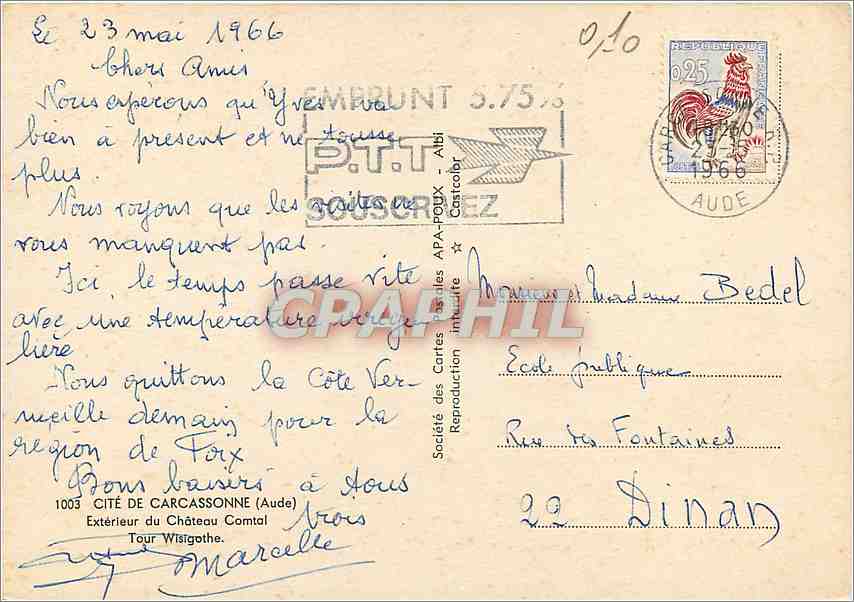 Le 23 mai 1966
Chers Amis
Nous espérons qu'Yves va
bien à présent et ne tousse
plus.
Nous voyons que les visites ne
vous manquent pas.
Ici le temps passe vite
avec une température irrégu
lière
Nous quittons la Côte Ver-
meille demain pour la
région de Foix
Bons baisers à tous
trois
Marcelle
1003 CITÉ DE CARCASSONNE (Aude)
Extérieur du Château Comtal
Tour Wisigothe.
EMPRUNT 5.75%
P.T.T
SOUSCRIVEZ
Société des Cartes Postales APA-POUX - Albi
Reproduction interdite ☆ Castcolor
0,10
REPUBLIQUE FRANÇAISE
0,25
1966
AUDE
Monsieur et Madame Bedel
Ecole publique
Rue des Fontaines
22 Dinan
CPAPHIL